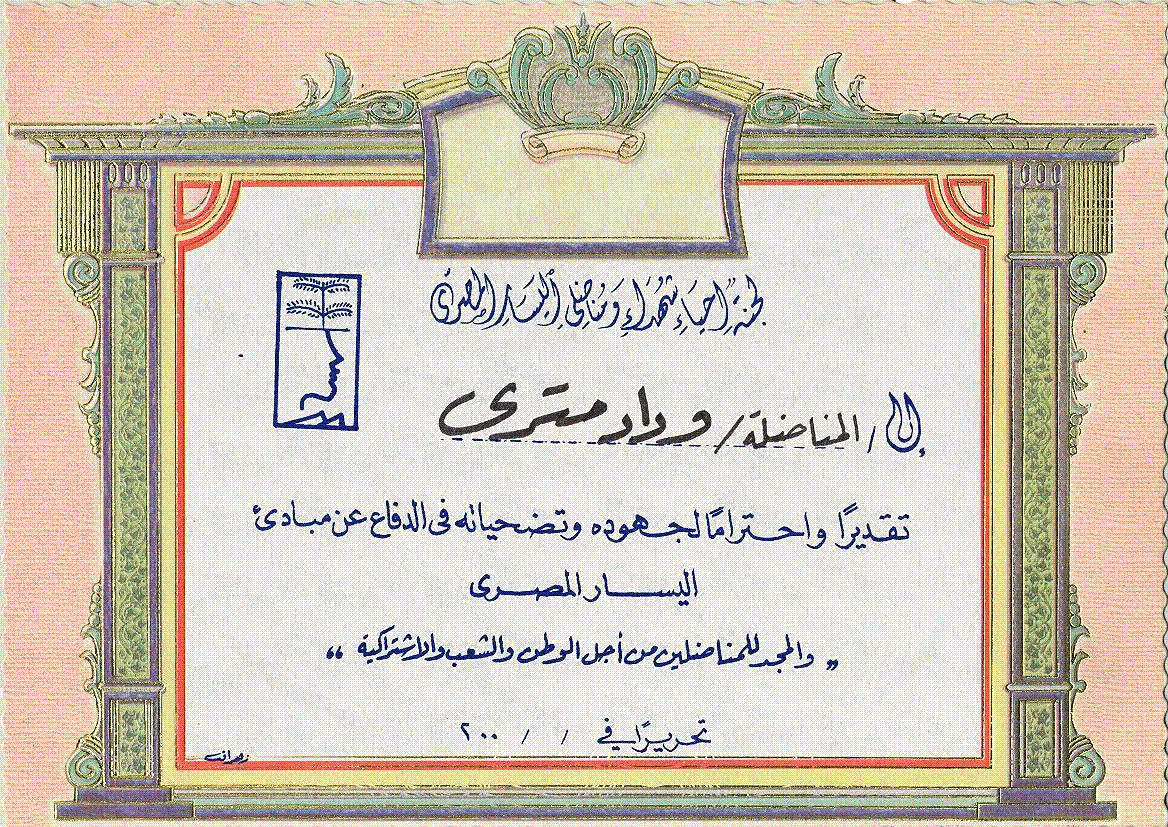 لجنة إحياء شهداء ومناضلي اليسار المصرى
إلى / المناضلة / وداد مترى
تقديرًا واحترامًا لجهوده وتضحياته فى الدفاع عن مبادئ
اليسار المصرى
" والمجد للمناضلين من أجل الوطن والشعب والاشتراكية "
تحريرًا في / / ٢٠٠
زهران